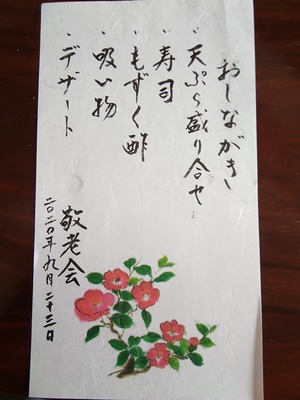 おしながき
・天ぷら盛り合せ
・寿司
・もずく酢
・吸い物
・デザート
敬老会
二〇二〇年九月二十三日